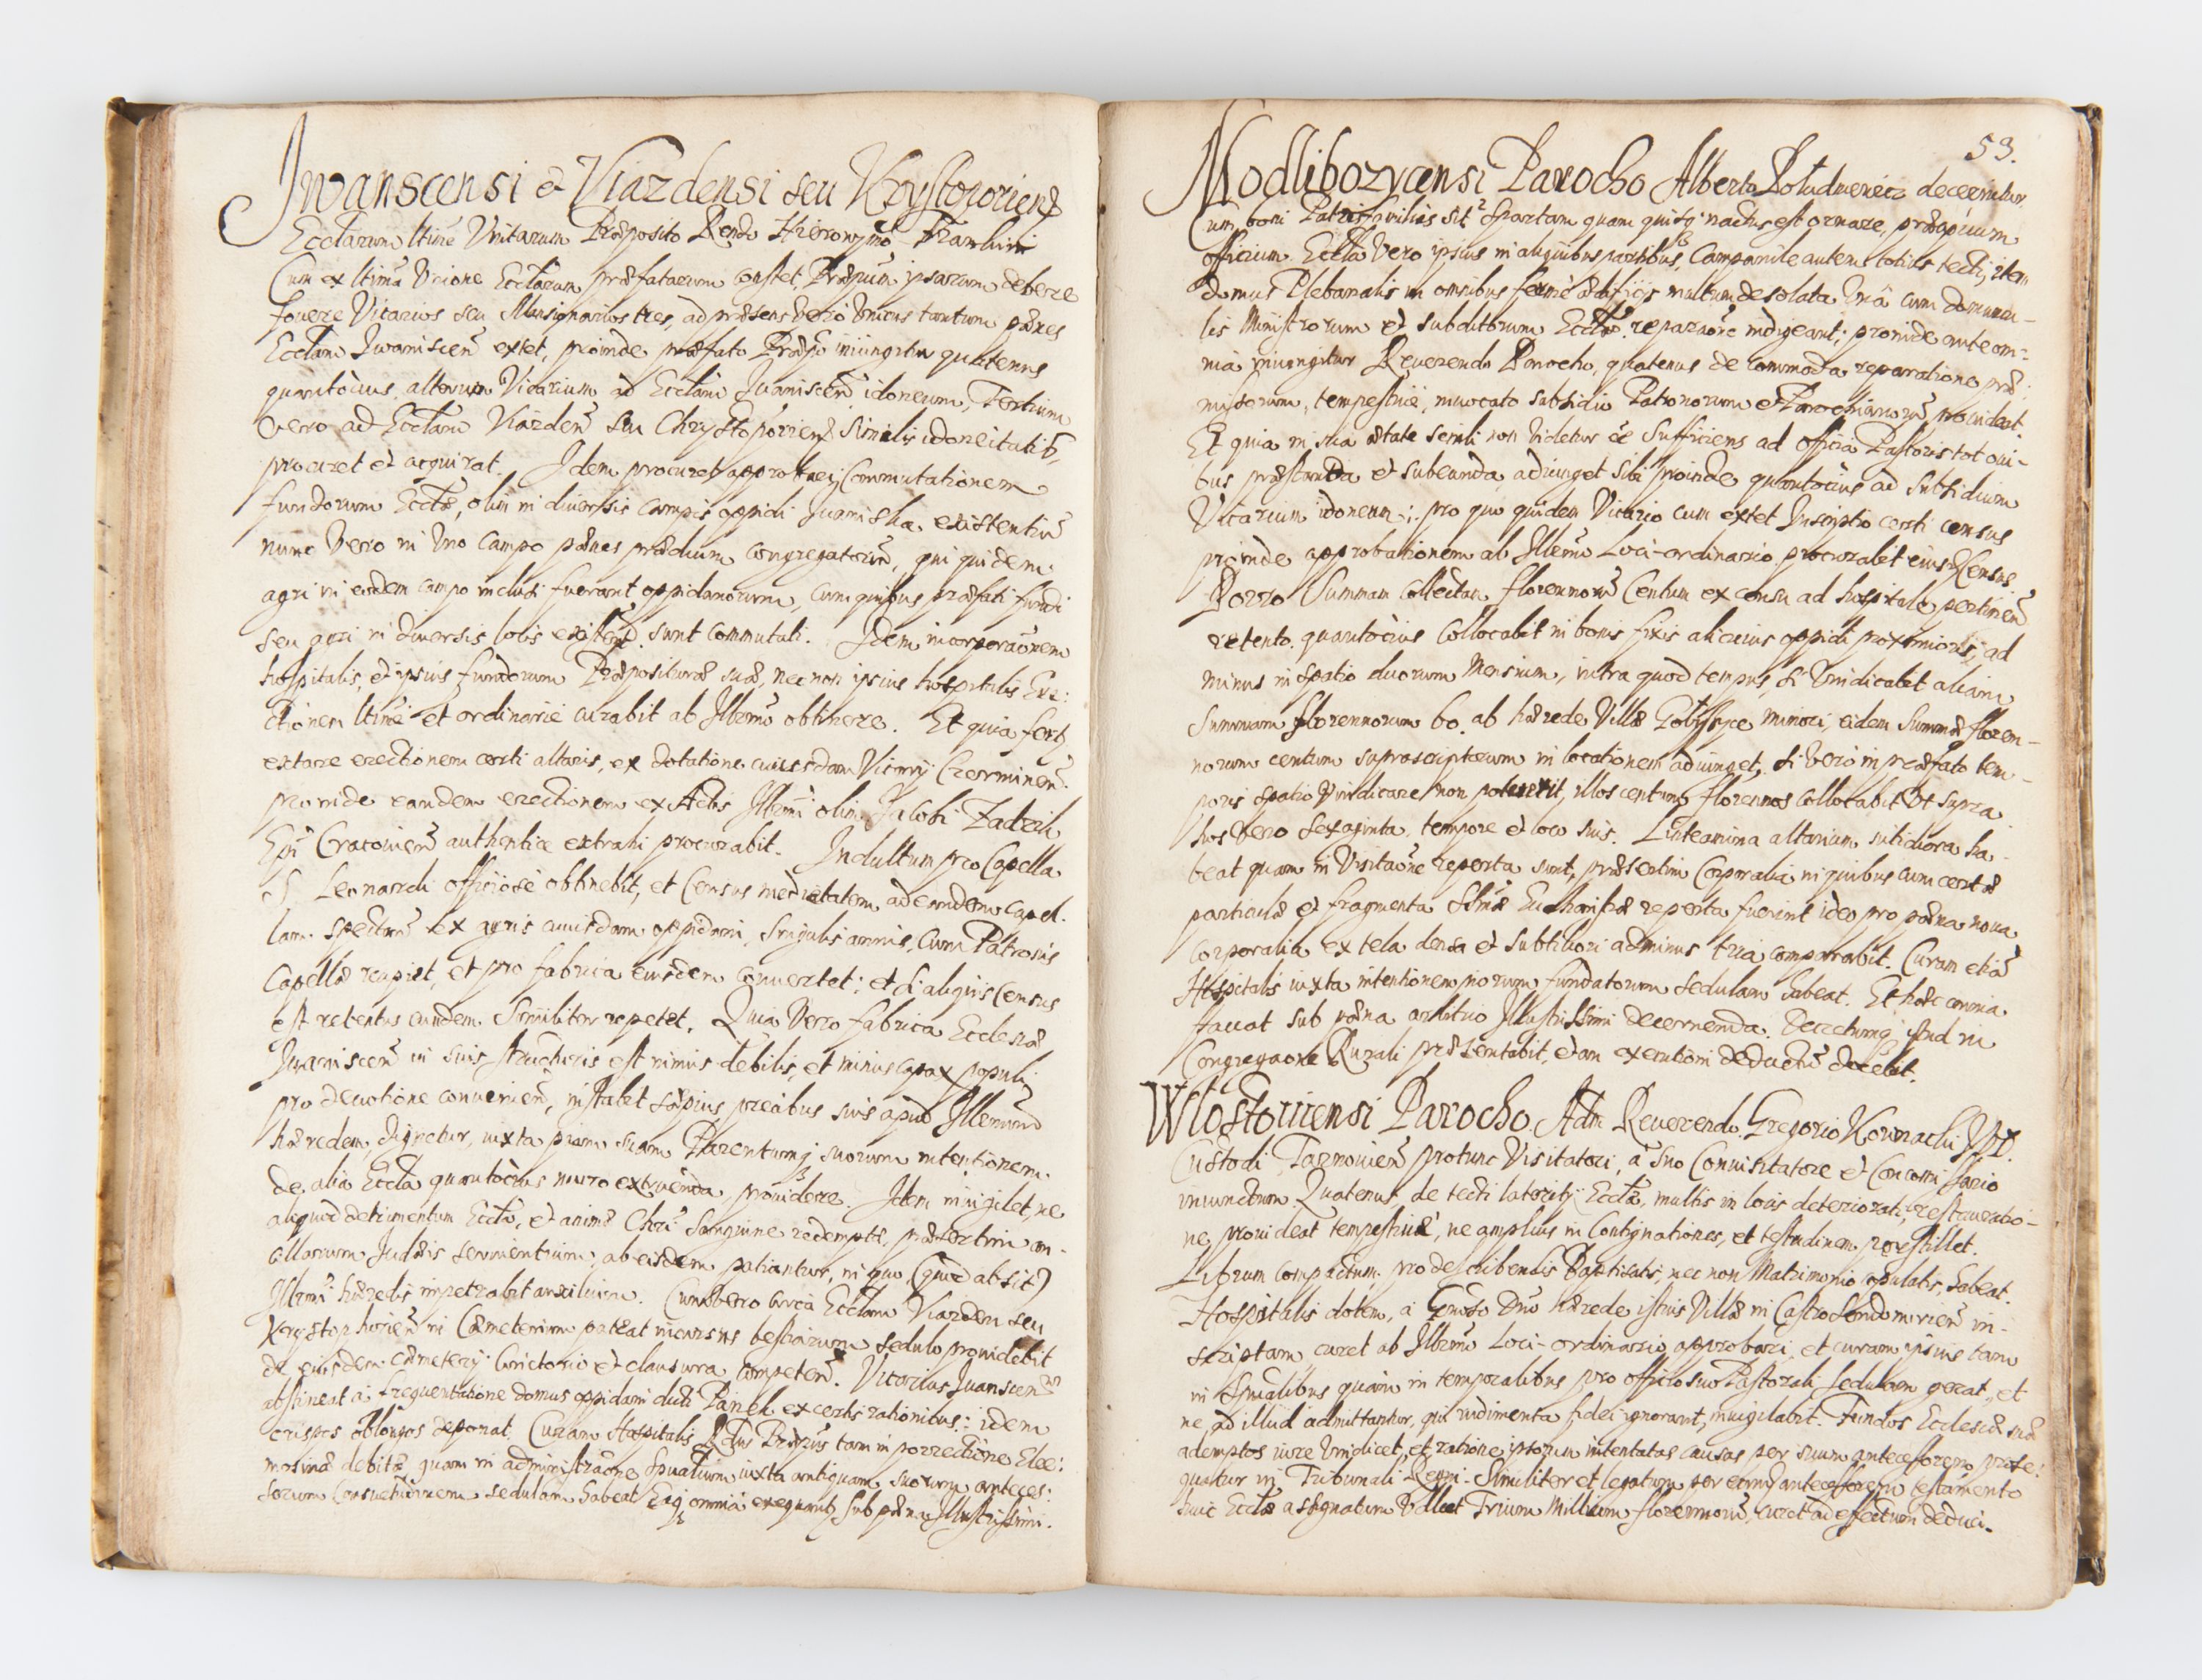 Iwanscensi et Viazdensi seu Krystoporiens
Ecclarum ltime Unitarum Præposito Rendo Hieronymo
Cum ex ltima Unione Ecclarum præfatarum constet, Præpum ipsarum debere
fovere Vicarios seu Mansionarios tres, ad præsens vero Unicus tantum pænes
Ecclam Iwaniscen extet, proinde præfato Præpo iniungitur quatenus
quantocius, alterum Vicarium ad Ecclam Iwaniscen idoneum, Tertium
vero ad Ecclam Viazden seu Chrystoporiens similis idoneitatis,
procuret et acquirat. Idem procuret approbari Commutationem
fundorum Ecclæ, olim in diversis campis oppidi Iwaniska existentium
nunc vero in Uno Campo pænes prædium congregatorum, qui quidem
agri in eodem campo inclusi fuerant oppidanorum, cum quibus præfati fundi
seu agri in diversis locis existen. sunt commutati. Idem incorporaonem
hospitalis, et ipsius fundorum Præposituræ suæ, nec non ipsius hospitalis Ere:
ctionem ltime et ordinarie curabit ab Illrmo obtinere. Et quia fertur
extare erectionem certi altaris, ex dotatione cuiusdam Vicarij Czerminen.
proinde eandem erectionem ex Actis Illrmi olim Jacobi Zadzik
Epi Cracovien authentice extrahi procurabit. Indultum pro Capella
S. Leonardi officiose obtinebit, et Census medietatem ad eandem Capel.
lam. spectan ex agris cuiusdam oppidani, singulis annis, cum Patronis
Capellæ recipiet, et pro fabrica eiusdem convertet; et si aliquis Census
est retentus eundem. Similiter repetet. Quia Vero fabrica Ecclesiæ
Iwaniscen in suis structuris est nimis debilis, et minus capax populi
pro devotione convenien, instabit sæpius precibus suis apud Illrmum
hæredem, dignetur, iuxta piam suam Parentumq suorum intentionem.
de alia Eccla quantocius muro extruenda, providere. Idem invigilet, ne
aliquod detrimentum Ecclæ, et animæ Chri Sanguine redemptæ, præsertim an-
cillarum Judæis servientium, ab eisdem patiantur, in quo (quod absit)
Illrmi hæredis impetrabit auxilium. Cum vero circa Ecclam Viazden seu
Krystophorien in Cæmeterium pateat incursus bestiarum sedulo providebit
de eiusdem cæmeterij Cinctorio et clausura competen. Vicarius Iwanscen
abstineat a frequentatione domus oppidani dicti Panek ex certis rationibus: idem
crispos oblongos deponat. Curam Hospitalis Rdus Præpus tam in porrectione Elee:
mosinæ debitæ quam in administraone spualium iuxta antiquam suorum anteces:
sorum consuetudinem sedulam habeat Eaq omnia exequantur sub pæna Illustrissimi.
53.
Modlibozycensi Parocho Alberto decernitur
Cum boni Patrisfamilias sit Spartam quam quisq nactus est ornare, præcipuum
officium. Eccla Vero ipsius in aliquibus partibus, Campanile autem totius tecti, item
domus Plebanalis in omnibus ferme ædifiijs multum desolata Una cum domuncu-
lis Ministrorum et subditorum Ecclæ reparaone indigeant; proinde ante om-
nia iniungitur Reverendo Parocho, quatenus de commoda reparatione præ:
missorum, tempestive, invocato subsidio Patronorum et Parochianorum provideat.
Et quia in sua ætate senili non videtur esse sufficiens ad officia Pastoris tot ovi-
bus præstanda et subeunda, adiunget sibi proinde quantocius ad subsidium
Vicarium idoneum; pro quo quidem Vicario cum extet Inscriptio certi census
proinde approbationem ab Illrmo Loci-ordinario procurabit eius Census.
Porro Summam Collectam florenorum Centum ex censu ad hospitale pertinen
retento. quantocius Collocabit in bonis fixis alicuius oppidi proximioris, ad
minus in spatio duorum Mensium, intra quod tempus, si Vindicabit aliam
Summam florennorum 60. ab hærede Villæ minori, eidem Summæ floren-
norum centum suprascriptorum in locationem adiunget, si vero in præfato tem-
poris spatio Vindicare non poterit, illos centum florennos Collocabit Ut supra
hos Vero sexaginta, tempore et loco suis. Linteamina altarium nitidiora ha-
beat quam in Visitaone reperta sunt, præsertim Corporalia in quibus cum certæ
particulæ et fragmenta SSmæ Eucharistiæ reperta fuerint ideo pro pæna nova
Corporalia ex tela densa et subtiliori adminus tria comparabit. Curam etiam
Hospitalis iuxta intentionem piorum fundatorum sedulam habeat. Et hæc omnia
faciat sub pæna arbitrio Illustrissimi decernenda. Decretumq istud in
Congregaone Rurali præsentabit, et an executioni deductum docebit.
Wlostoviensi Parocho Adm Reverendo Gregorio Kownacki
Custodi Tarnovien protunc Visitatori, a suo Convisitatore et Concomissario
iniunctum. Quatenus, de tecti lateritij Ecclæ, multis in locis deteriorati, restauratio-
ne, provideat tempestive, ne amplius in Contignationes, et testudinem perstillet.
Librum compactum pro describendis Baptisatis, nec non Matrimonio copulatis, habeat.
Hospitalis dotem, a Gnoso Dno hærede istius Villæ in Castro Sendomirien in-
scriptam, curet ab Illrmo Loci-ordinario approbari, et curam ipsius tam
in spualibus quam in temporalibus pro officio suo Pastorali sedulam gerat, et
ne ad illud admittantur, qui rudimenta fidei ignorant, invigilabit. Fundos Ecclesiæ suæ
ademptos iure Vindicet, et ratione ipsorum intentatas causas per suum antecessorem prose:
quatur in Tribunali Regni. Similiter et legatum per eundem antecessorem testamento
huic Ecclæ assignatum Trium Millium florennorum, curet ad effectum deduci.